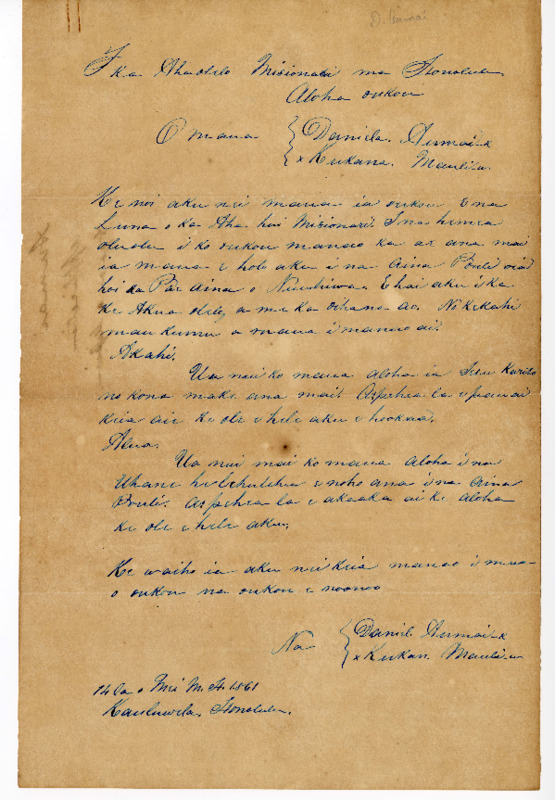 I ka Ahaolelo Misionari ma Honolulu
Aloha oukou
O maua { Daniela.
x Kukana. Maulili.
Ke noi aku nei maua ia oukou E na
Luna o ka Aha hui Misionari. Ina he mea
oluolu i ko oukou manao ka ae ana mai
ia maua e hele aku i na Aina Pouli oia
hoi ka Pae aina o Nuuhiwa E hai aku i ka
ke Akua olelo, a me ka oihana ao. No kekahi
mau kumu a maua i manao ai.
Akahi.
Ua nui ko maua aloha ia Iesu Kuristo
no kona make ana mai. Aspehea la e pau ai
keia aie ke ole e hele aku e hookaa.
Alua.
Ua nui mai ko maua Aloha i na
Uhane he lehulehu e noho ana i na Aina
Pouli. Aspehea la e akaaka ai ke aloha
ke ole e hele aku.
Ke waiho ia aku nei keia manao i mua
o oukou na oukou e noonoo
Na { Daniel.
x Kukan. Maulili
14 la o Mei M.H. 1861
Kauluwela, Honolulu.